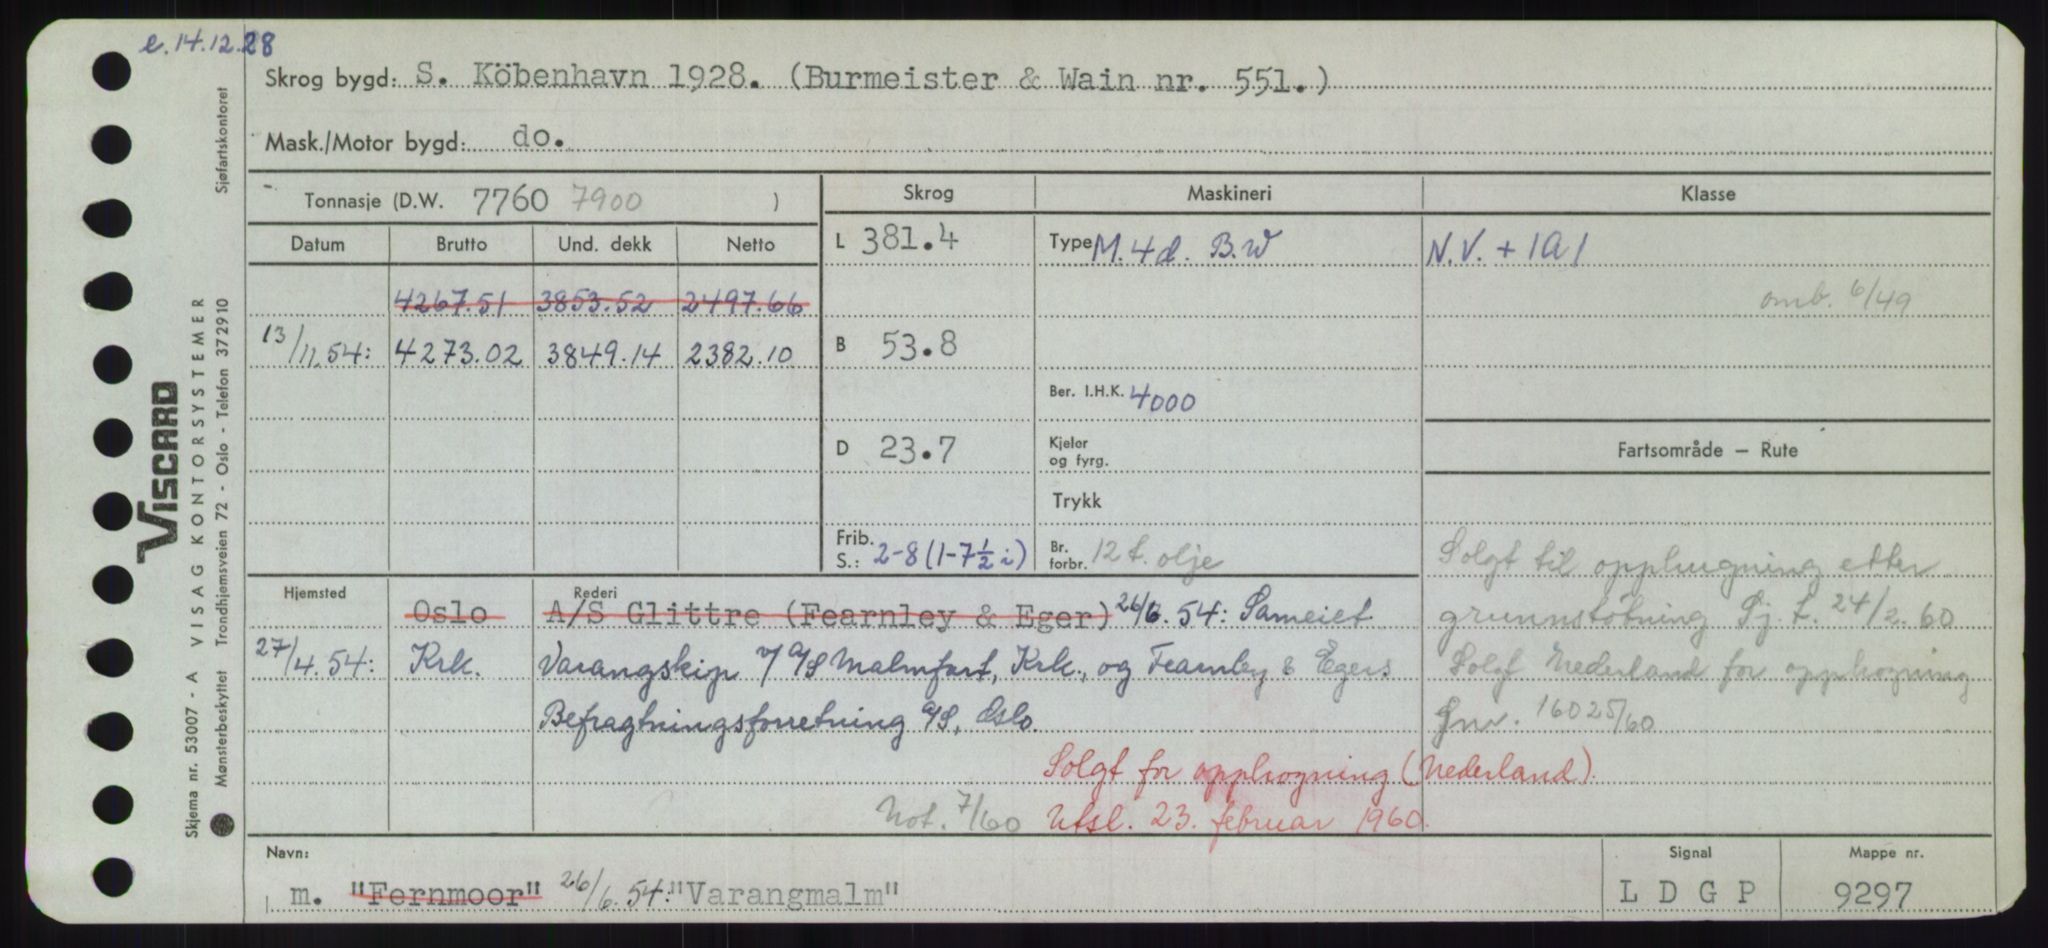 e. 14.12.28
Skrog bygd: S. Köbenhavn 1928. (Burmeister & Wain nr. 551.)
Mask./Motor bygd: do.
Tonnasje (D.W. 7760 7900 )
Skrog Maskineri Klasse
Datum Brutto Und. dekk Netto
L 381.4 Type M. 4d. B.W N.V. + 1A1
4267.51 3853.52 2497.66
omb. 6/49
13/11.54: 4273.02 3849.14 2382.10
B 53.8
Ber. I.H.K. 4000
D 23.7 Kjeler og fyrg.
Fartsområde – Rute
Trykk
Frib. S.: 2-8 (1-7½ i) Br. forbr. 12 t. olje
Solgt til opphugning etter
grunnstötning Sj. t. 24/2.60
Solgt Nederland for opphogning
Jnr. 16025/60
Hjemsted Rederi
Oslo A/S Glittre (Fearnley & Eger) 26/6.54: Sameiet
27/4.54: Krk. Varangskip v/ A/S Malmfart, Krk., og Fearnley & Egers
Befragtningsforretning A/S, Oslo.
Solgt for opphogning (Nederland).
Not. 7/60 Utsl. 23. februar 1960.
Navn: Signal Mappe nr.
m. "Fernmoor" 26/6.54: "Varangmalm" LDGP 9297
VISCARD
Skjema nr. 53007 - A VISAG KONTORSYSTEMER
Mønsterbeskyttet Trondhjemsveien 72 - Oslo - Telefon 372910 Sjøfartskontoret